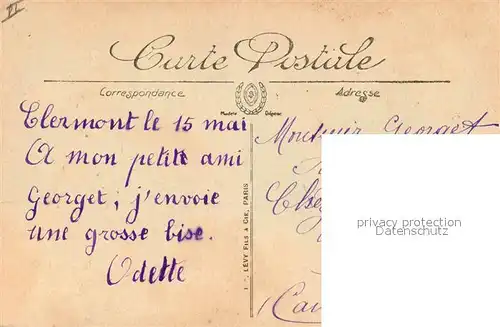 Carte Postale
Correspondance
Adresse
Clermont le 15 mai
A mon petit ami
Georget, j'envoie
une grosse bise.
Odette
LÉVY FILS & CIE, PARIS
Georget
privacy protection
Datenschutz